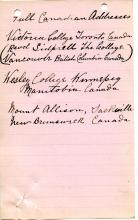 Full Canadian Addresses
Victoria College Toronto Canada
(Revd Sidprell The College
Vancouver British Columbia Canada)
Wesley College Winnipeg
Manitoba Canada
Mount Allison, Sackville
New Brunswick Canada